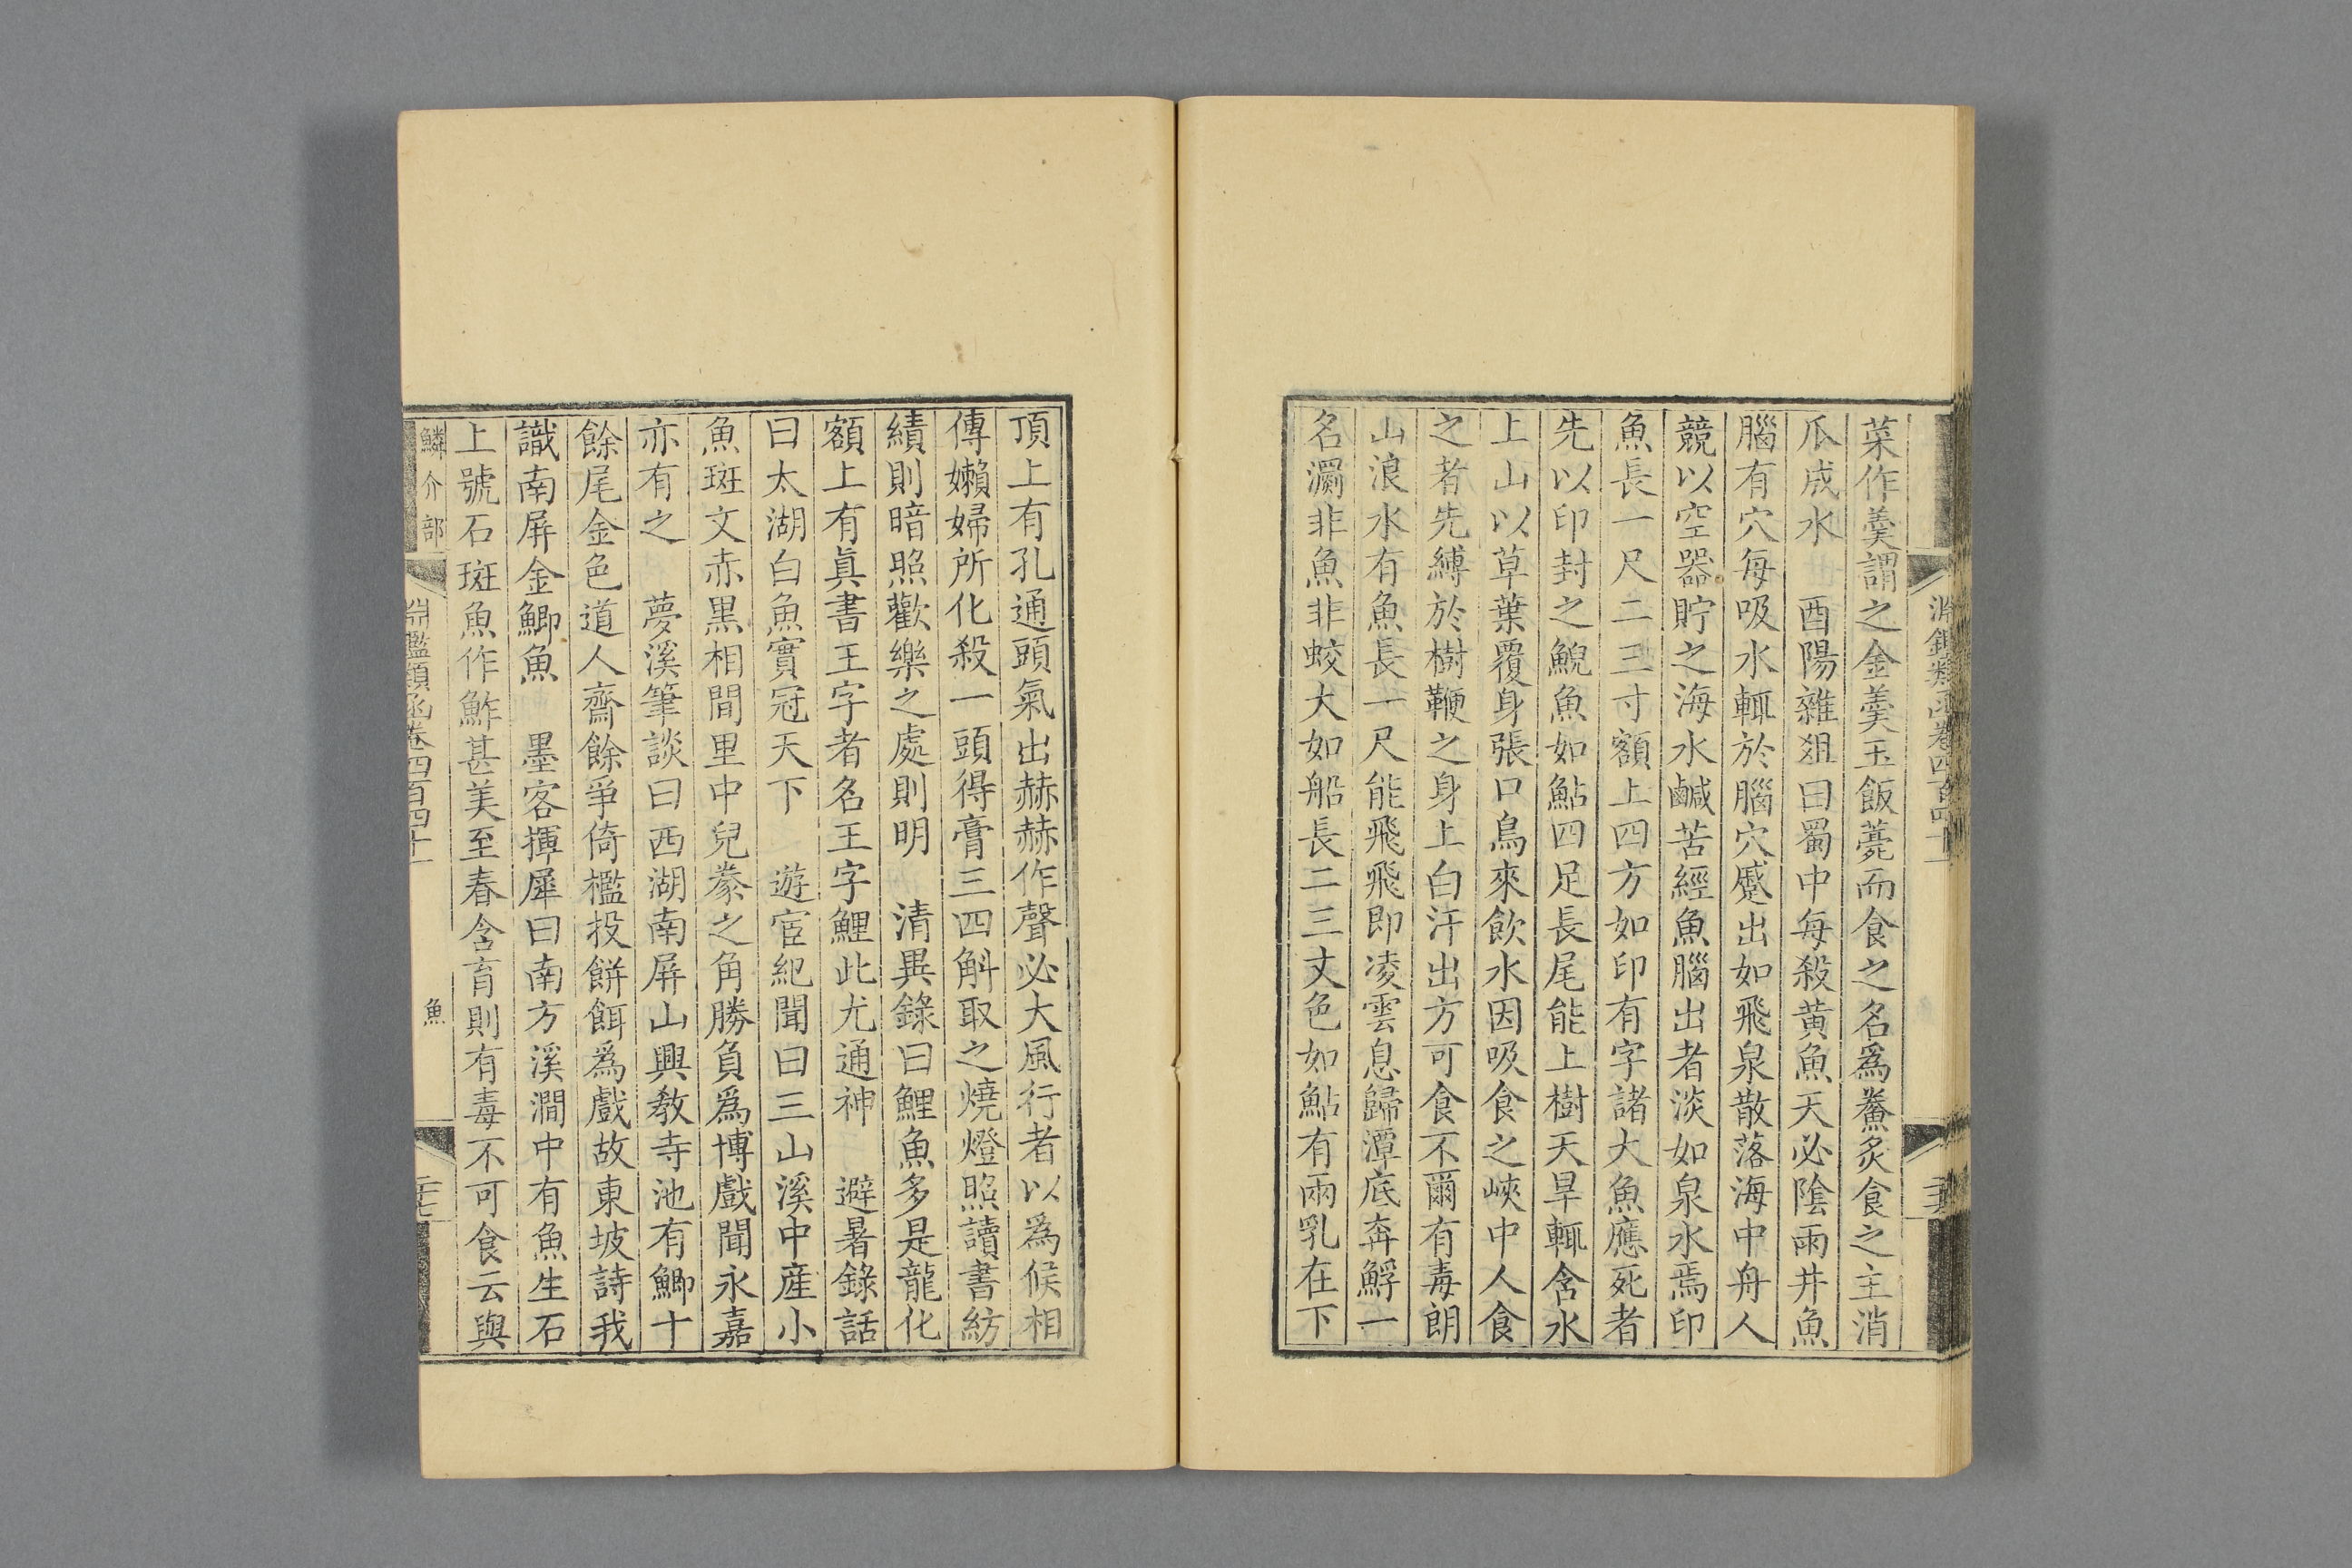 淵鑑類函卷四百四十一
菜作羹謂之金羹玉飯薨而食之名爲鱶炙食之主消
瓜成水　酉陽雜俎曰蜀中每殺黄魚天必陰雨井魚
腦有穴每吸水輒於腦穴蹙出如飛泉散落海中舟人
競以空器貯之海水鹹苦經魚腦出者淡如泉水焉印
魚長一尺二三寸額上四方如印有字諸大魚應死者
先以印封之鯢魚如鮎四足長尾能上樹天旱輒含水
上山以草葉覆身張口鳥來飲水因吸食之峽中人食
之者先縛於樹鞭之身上白汗出方可食不爾有毒朗
山浪水有魚長一尺能飛飛即凌雲息歸潭底奔䱐一
名瀱非魚非蛟大如船長二三丈色如鮎有兩乳在下
頂上有孔通頭氣出赫赫作聲必大風行者以爲候相
傳嬾婦所化殺一頭得膏三四斛取之燒燈照讀書紡
績則暗照歡樂之處則明　清異錄曰鯉魚多是龍化
額上有眞書王字者名王字鯉此尤通神　避暑錄話
曰太湖白魚實冠天下　遊宦紀聞曰三山溪中産小
魚斑文赤黑相間里中兒豢之角勝負爲博戲聞永嘉
亦有之　夢溪筆談曰西湖南屏山興教寺池有鯽十
餘尾金色道人齋餘爭倚檻投餅餌爲戲故東坡詩我
識南屏金鯽魚　墨客揮犀曰南方溪澗中有魚生石
上號石斑魚作鮓甚美至春含育則有毒不可食云與
鱗介部
淵鑑類函卷四百四十一
魚
二十七